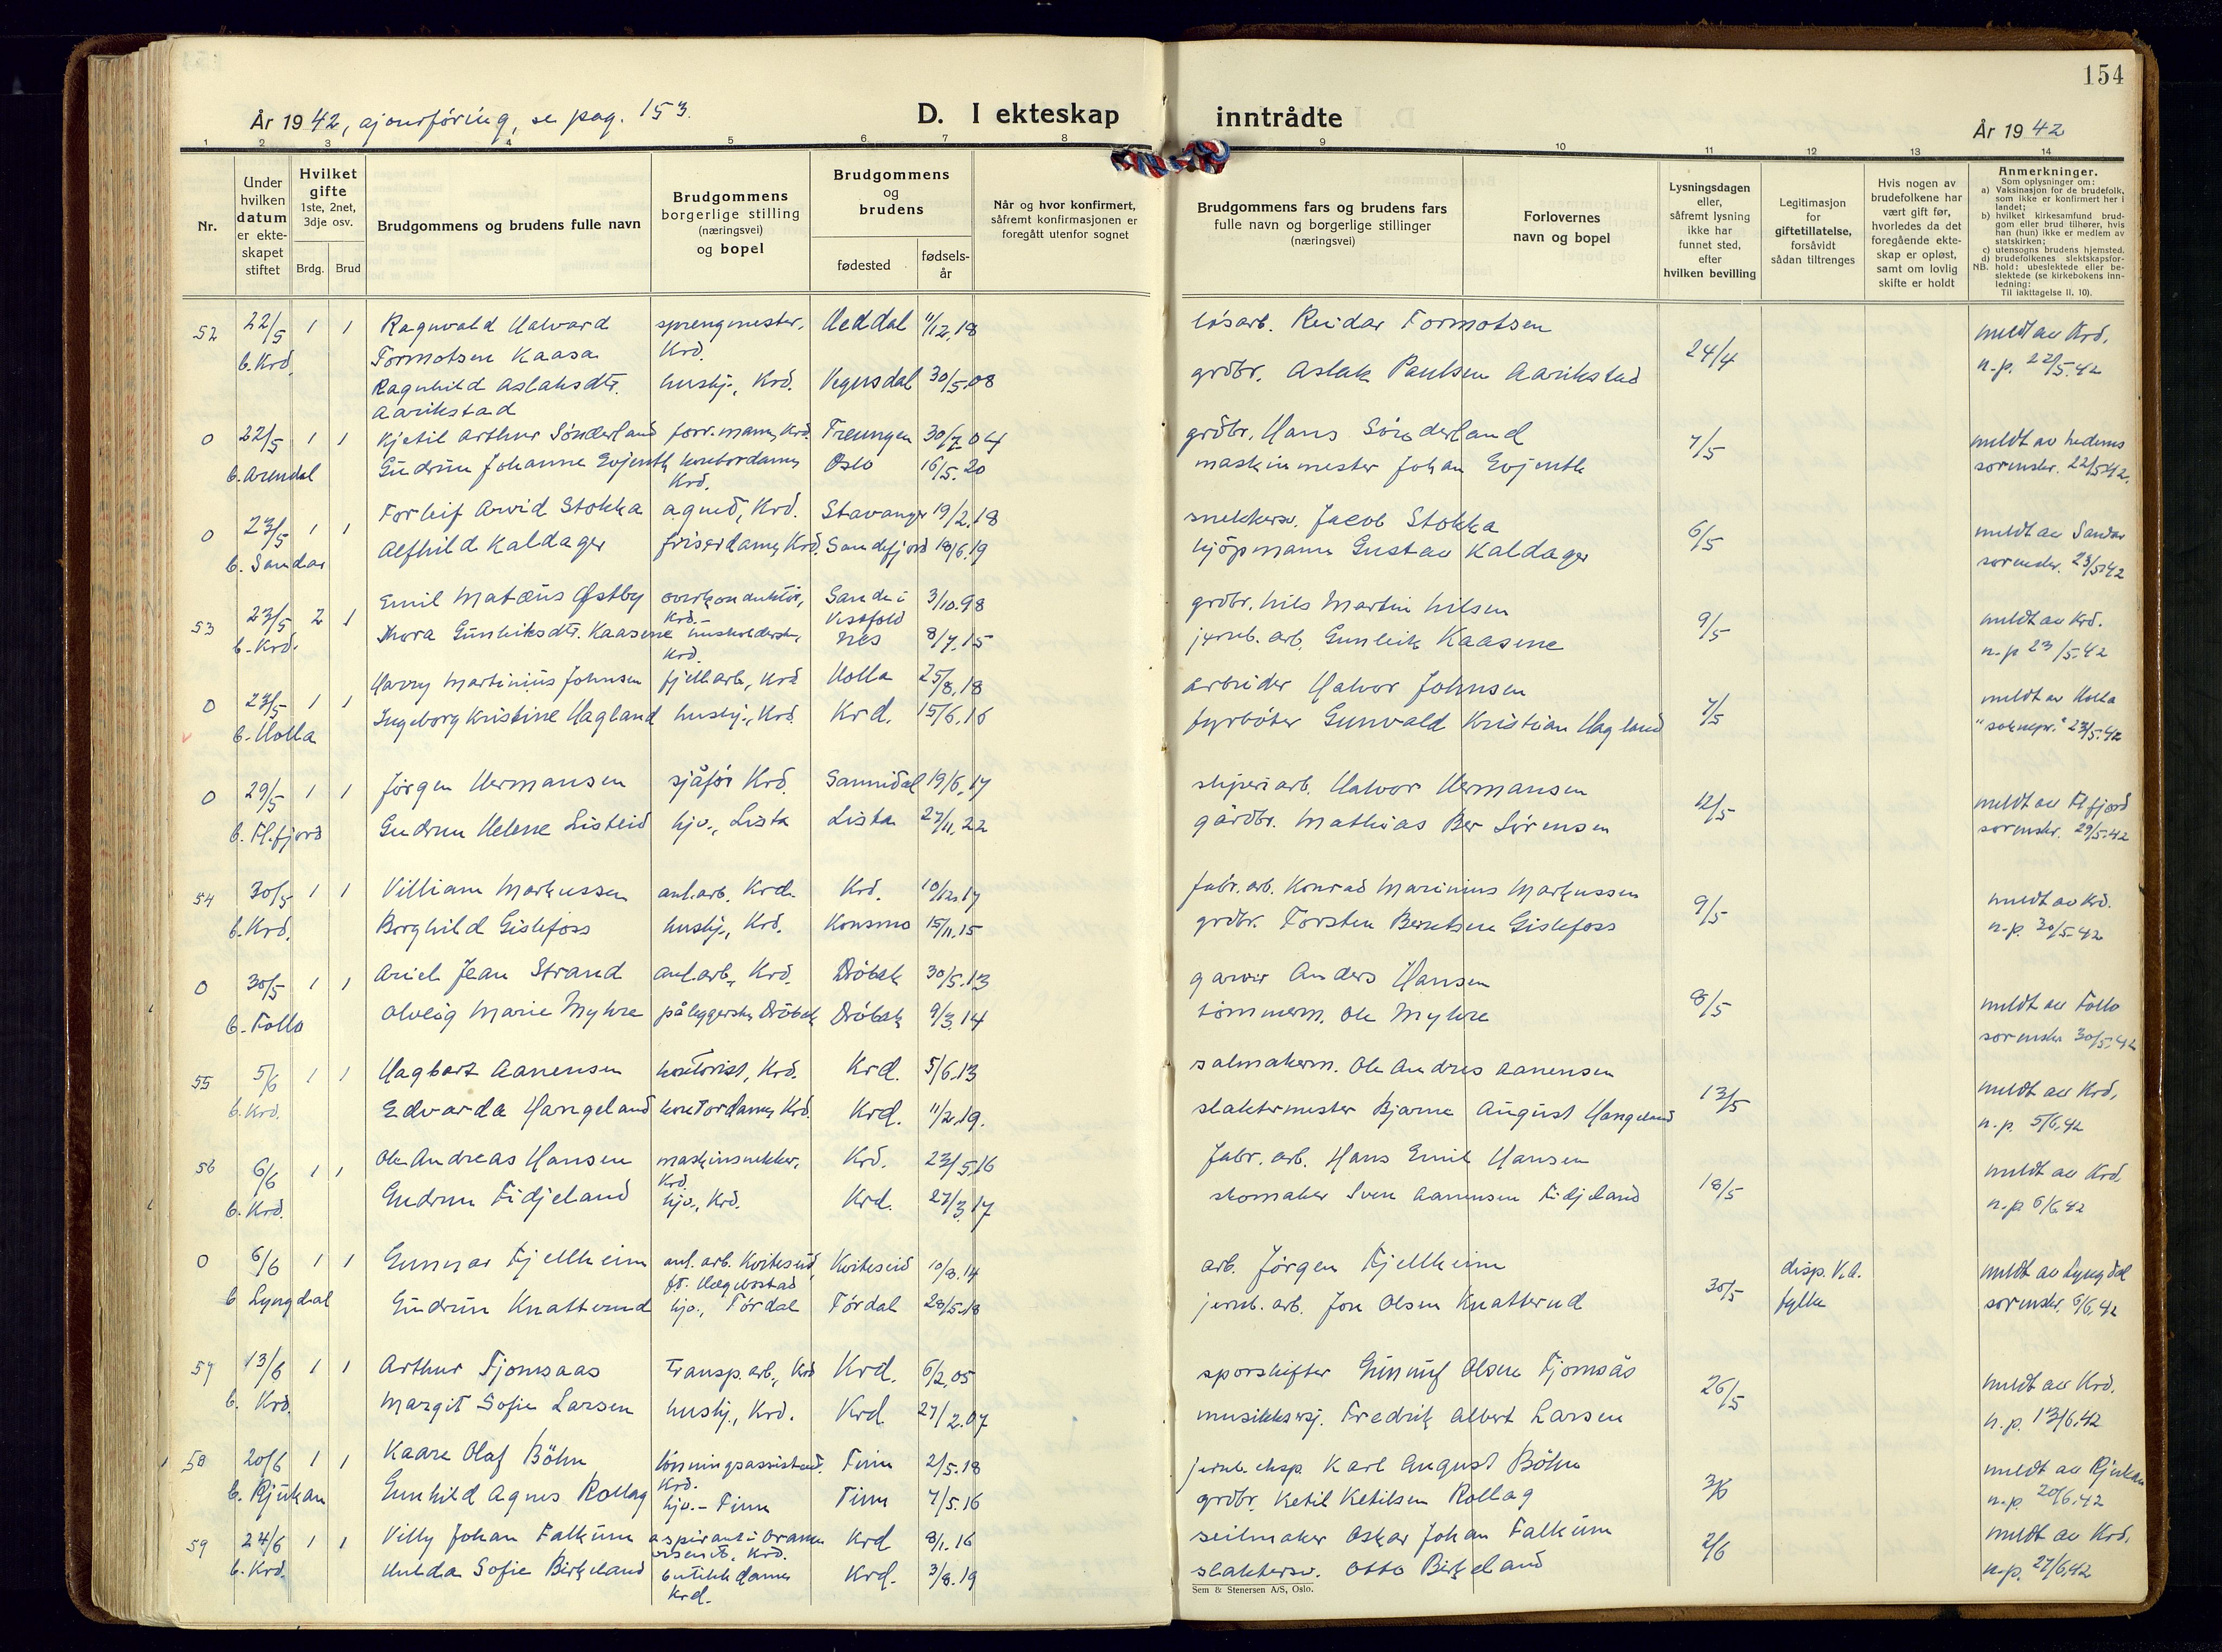 154
År 1942, ajourføring, se pag. 153.
D. I ekteskap inntrådte
År 1942
1 2 3 4 5 6 7 8 9 10 11 12 13 14
Nr.
Under hvilken datum er ekteskapet stiftet
Hvilket gifte 1ste, 2net, 3dje osv.
Brdg. Brud
Brudgommens og brudens fulle navn
Brudgommens borgerlige stilling (næringsvei) og bopel
Brudgommens og brudens
fødested
fødselsår
Når og hvor konfirmert, såfremt konfirmasjonen er foregått utenfor sognet
Brudgommens fars og brudens fars fulle navn og borgerlige stillinger (næringsvei)
Forlovernes navn og bopel
Lysningsdagen eller, såfremt lysning ikke har funnet sted, efter hvilken bevilling
Legitimasjon for giftetillatelse, forsåvidt sådan tiltrenges
Hvis nogen av brudefolkene har vært gift før, hvorledes da det foregående ekteskap er opløst, samt om lovlig skifte er holdt
Anmerkninger.
Som oplysninger om:
a) Vaksinasjon for de brudefolk, som ikke er konfirmert her i landet;
b) hvilket kirkesamfund brudgom eller brud tilhører, hvis han (hun) ikke er medlem av statskirken;
c) utensogns brudens hjemsted.
d) brudefolkenes slektskapsforhold: ubeslektede eller beslektede (se kirkebokens innledning:
NB.
Til iakttagelse II, 10).
52 22/5 1 1 Ragnvald Halvard sprengmester, Heddal 11/12.18 løsarb. Reidar Tormotsen meldt av Krd.
b. Krd. Tormotsen Kaasa Krd. 24/4 n.p. 22/5.42
Ragnhild Aslaksdtr. hushj., Krd. Vegusdal 30/5.08 grdbr. Aslak Paulsen Aarikstad
Aarikstad
0 22/5 1 1 Kjetil Arthur Sønderland forr.mann, Krd. Treungen 30/7.04 grdbr. Hans Sønderland 7/5 meldt av Nedenes
b. Arendal Gudrun Johanne Evjenth kontordame, Oslo 16/5.20 maskinmester Johan Evjenth sorenskr. 22/5.42.
Krd.
0 23/5 1 1 Torleif Arvid Stokka agned, Krd. Stavanger 19/2.18 snekkersv. Jacob Stokka 6/5 meldt av Sandar
b. Sandar Alfhild Kaldager friserdame, Krd. Sandefjord 18/6.19 kjøpmann Gustav Kaldager sorenskr. 23/5.42
53 23/5 2 1 Emil Matæus Østby overkonduktør, Sande i 3/10.98 grdbr. Nils Martin Nilsen 9/5 meldt av Krd.
Krd. Vestfold
b. Krd. Thora Gunleiksdtr. Kaasene husholderske, Nes 8/7.15 jernb. arb. Gunleik Kaasene n.p. 23/5.42
Krd.
0 23/5 1 1 Harry Martinius Johnsen fjellarb., Krd. Holla 25/8.18 arbeider Halvor Johnsen 7/5 meldt av Holla
b. Holla Ingeborg Kristine Hagland hushj., Krd. Krd. 15/6.16 fyrbøter Gunvald Kristian Hagland "soknepr." 23/5.42
0 29/5 1 1 Jørgen Hermansen sjåfør Krd. Sannidal 19/6.17 sliperiarb. Halvor Hermansen 12/5 meldt av Fl.fjord
b. Fl.fjord Gudrun Helene Listeid hjv., Lista Lista 27/11.22 gårdbr. Mathias Ber Sørensen sorenskr. 29/5.42
54 30/5 1 1 Villiam Markussen anl.arb. Krd. Krd. 10/12.17 fabr. arb. Konrad Marinius Markussen 9/5 meldt av Krd.
b. Krd. Borghild Gislefoss hushj., Krd. Konsmo 15/11.15 grdbr. Torsten Berntsen Gislefoss n.p. 30/5.42
0 30/5 1 1 Ariel Jean Strand anl.arb., Krd. Drøbak 30/5.13 garver Anders Hansen 8/5 meldt av Follo
b. Follo Olveig Marie Myhre påleggerske, Drøbak Drøbak 9/3.14 tømmerm. Ole Myhre sorenskr. 30/5.42
55 5/6 1 1 Hagbart Aanensen kontorist, Krd. Krd. 5/6.13 salmakerm. Ole Andres Aanensen 13/5 meldt av Krd.
b. Krd. Edvarda Hangeland kontordame, Krd. Krd. 11/2.19. slaktermester Bjarne August Hangeland n.p. 5/6.42
56 6/6 1 1 Ole Andreas Hansen maskinsnekker, Krd. 23/5.16 Fabr. arb. Hans Emil Hansen 18/5 meldt av Krd.
Krd.
b. Krd. Gudrun Fidjeland hjv., Krd. Krd. 27/3.17 skomaker Sven Aanensen Fidjeland n.p. 6/6.42
0 6/6 1 1 Gunnar Fjellheim anl. arb. Kviteseid, Kviteseid 10/8.14 arb. Jørgen Fjellheim 30/5 disp. V.A. meldt av Lyngdal
ft. Hægebostad
b. Lyngdal Gudrun Knatterud hjv., Tørdal Tørdal 28/5.18 jernb. arb. Jon Olsen Knatterud fylke sorenskr. 6/6.42
57 13/6 1 1 Arthur Fjomsaas Transp.arb., Krd. Krd. 6/2.05 sporskifter Gunnuf Olsen Fjomsås 26/5 meldt av Krd.
b. Krd. Margit Sofie Larsen hushj., Krd. Krd. 27/2.07 musikksersj. Fredrik Albert Larsen n.p. 13/6.42
58 20/6 1 1 Kaare Olaf Böhn lønningsassistent, Tinn 2/5.18 jernb. eksp. Karl August Böhn 3/6 meldt av Rjukan
Krd.
b. Rjukan Gunhild Agnes Rollag hjv. - Tinn Tinn 7/5.16 grdbr. Ketil Ketilsen Rollag n.p. 20/6.42
59 24/6 1 1 Villy Johan Falkum aspirant i Krd. 8/1.16 seilmaker Oskar Johan Falkum 2/6 meldt av Krd.
b. Krd. Hulda Sofie Birkeland butikkdame, Krd. 3/8.19 slaktersv. Otto Birkeland n.p. 27/6.42
Krd.
Sem & Stenersen A/S, Oslo.